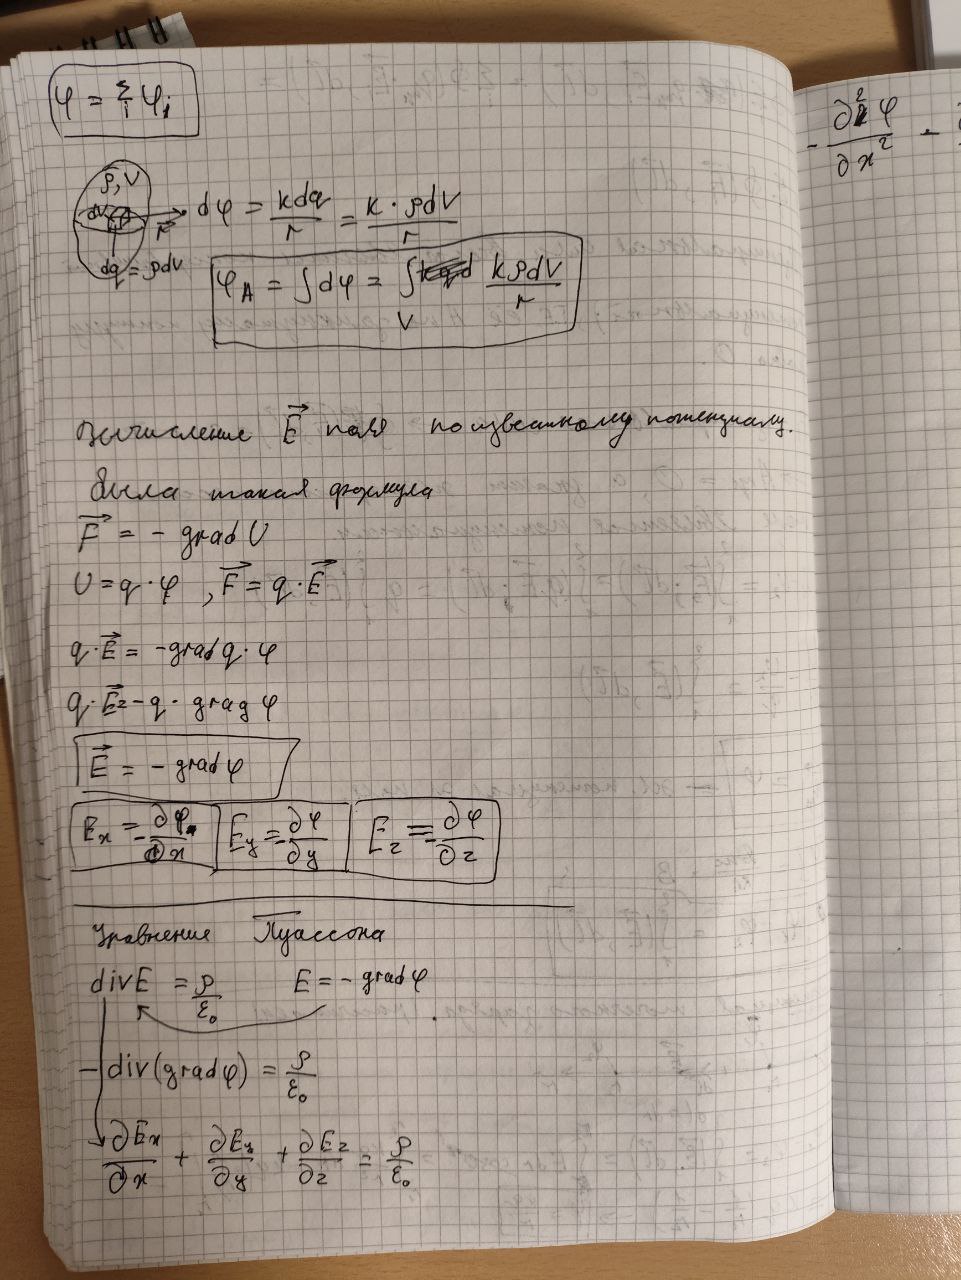 φ = Σ_i φ_i
ρ, V
dV
r⃗
dφ = kdq/r = k · ρdV/r
dq = ρdV
φ_A = ∫dφ = ∫_V kρdV/r
Вычисление E⃗ поля по известному потенциалу.
Была такая формула
F⃗ = - grad U
U = q · φ , F⃗ = q · E⃗
q · E⃗ = -grad q · φ
q · E⃗ = -q · grad φ
E⃗ = - grad φ
E_x = -∂φ/∂x E_y = -∂φ/∂y E_z = -∂φ/∂z
Уравнение Пуассона
div E = ρ/ε₀ E = - grad φ
- div (grad φ) = ρ/ε₀
∂E_x/∂x + ∂E_y/∂y + ∂E_z/∂z = ρ/ε₀
- ∂²φ/∂x² -